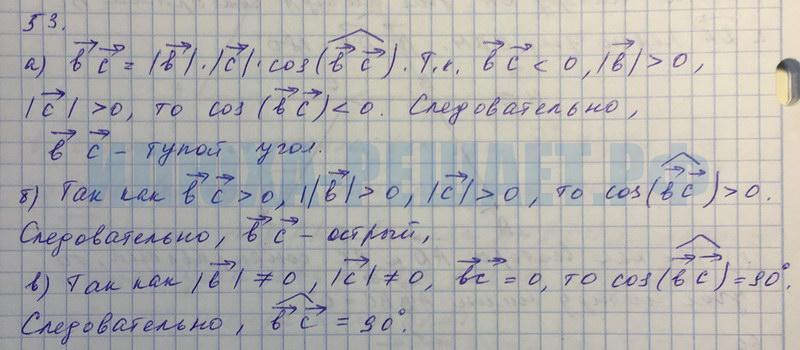 53.
а) b⃗ c⃗ = |b⃗| · |c⃗| · cos(b⃗ c⃗). Т.к. b⃗ c⃗ < 0, |b⃗| > 0,
|c⃗| > 0, то cos (b⃗ c⃗) < 0. Следовательно,
b⃗ c⃗ – тупой угол.
б) Так как b⃗ c⃗ > 0, ||b⃗| > 0, |c⃗| > 0, то cos(b⃗ c⃗) > 0.
Следовательно, b⃗ c⃗ – острый,
в) Так как |b⃗| ≠ 0, |c⃗| ≠ 0, b⃗c⃗ = 0, то cos(b⃗ c⃗) = 90°.
Следовательно, b⃗ c⃗ = 90°.